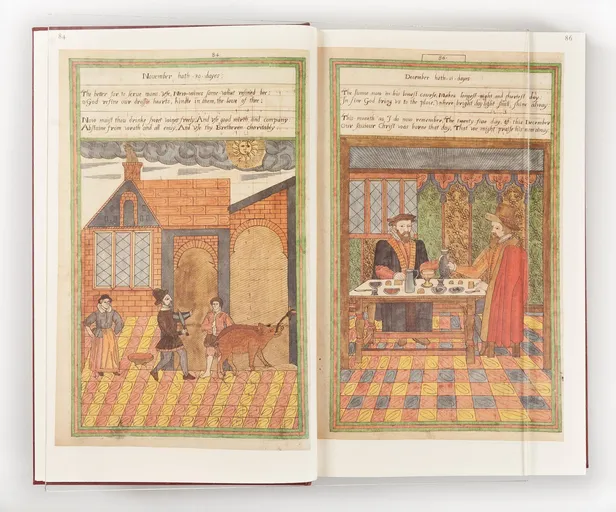 84
84
November hath 30 dayes
The
to serve mans use,
some what refined bee:
O God refine our drossie hearts, kindle in them, the love of thee:
Now maist thou drinke sweet wines freely, And use good mirth and company
Abstaine from wrath and all envy, And use thy Bretheren charitably
86
86
December hath 31 dayes
The sunne now in his lowest course, Makes longest night and shortest day.
In fine God bring us to the place, where bright day light shall shine alway
This month as I do now remember, The twenty five day of this December
Our Saviour Christ was borne that day, That we might praise his
alway.